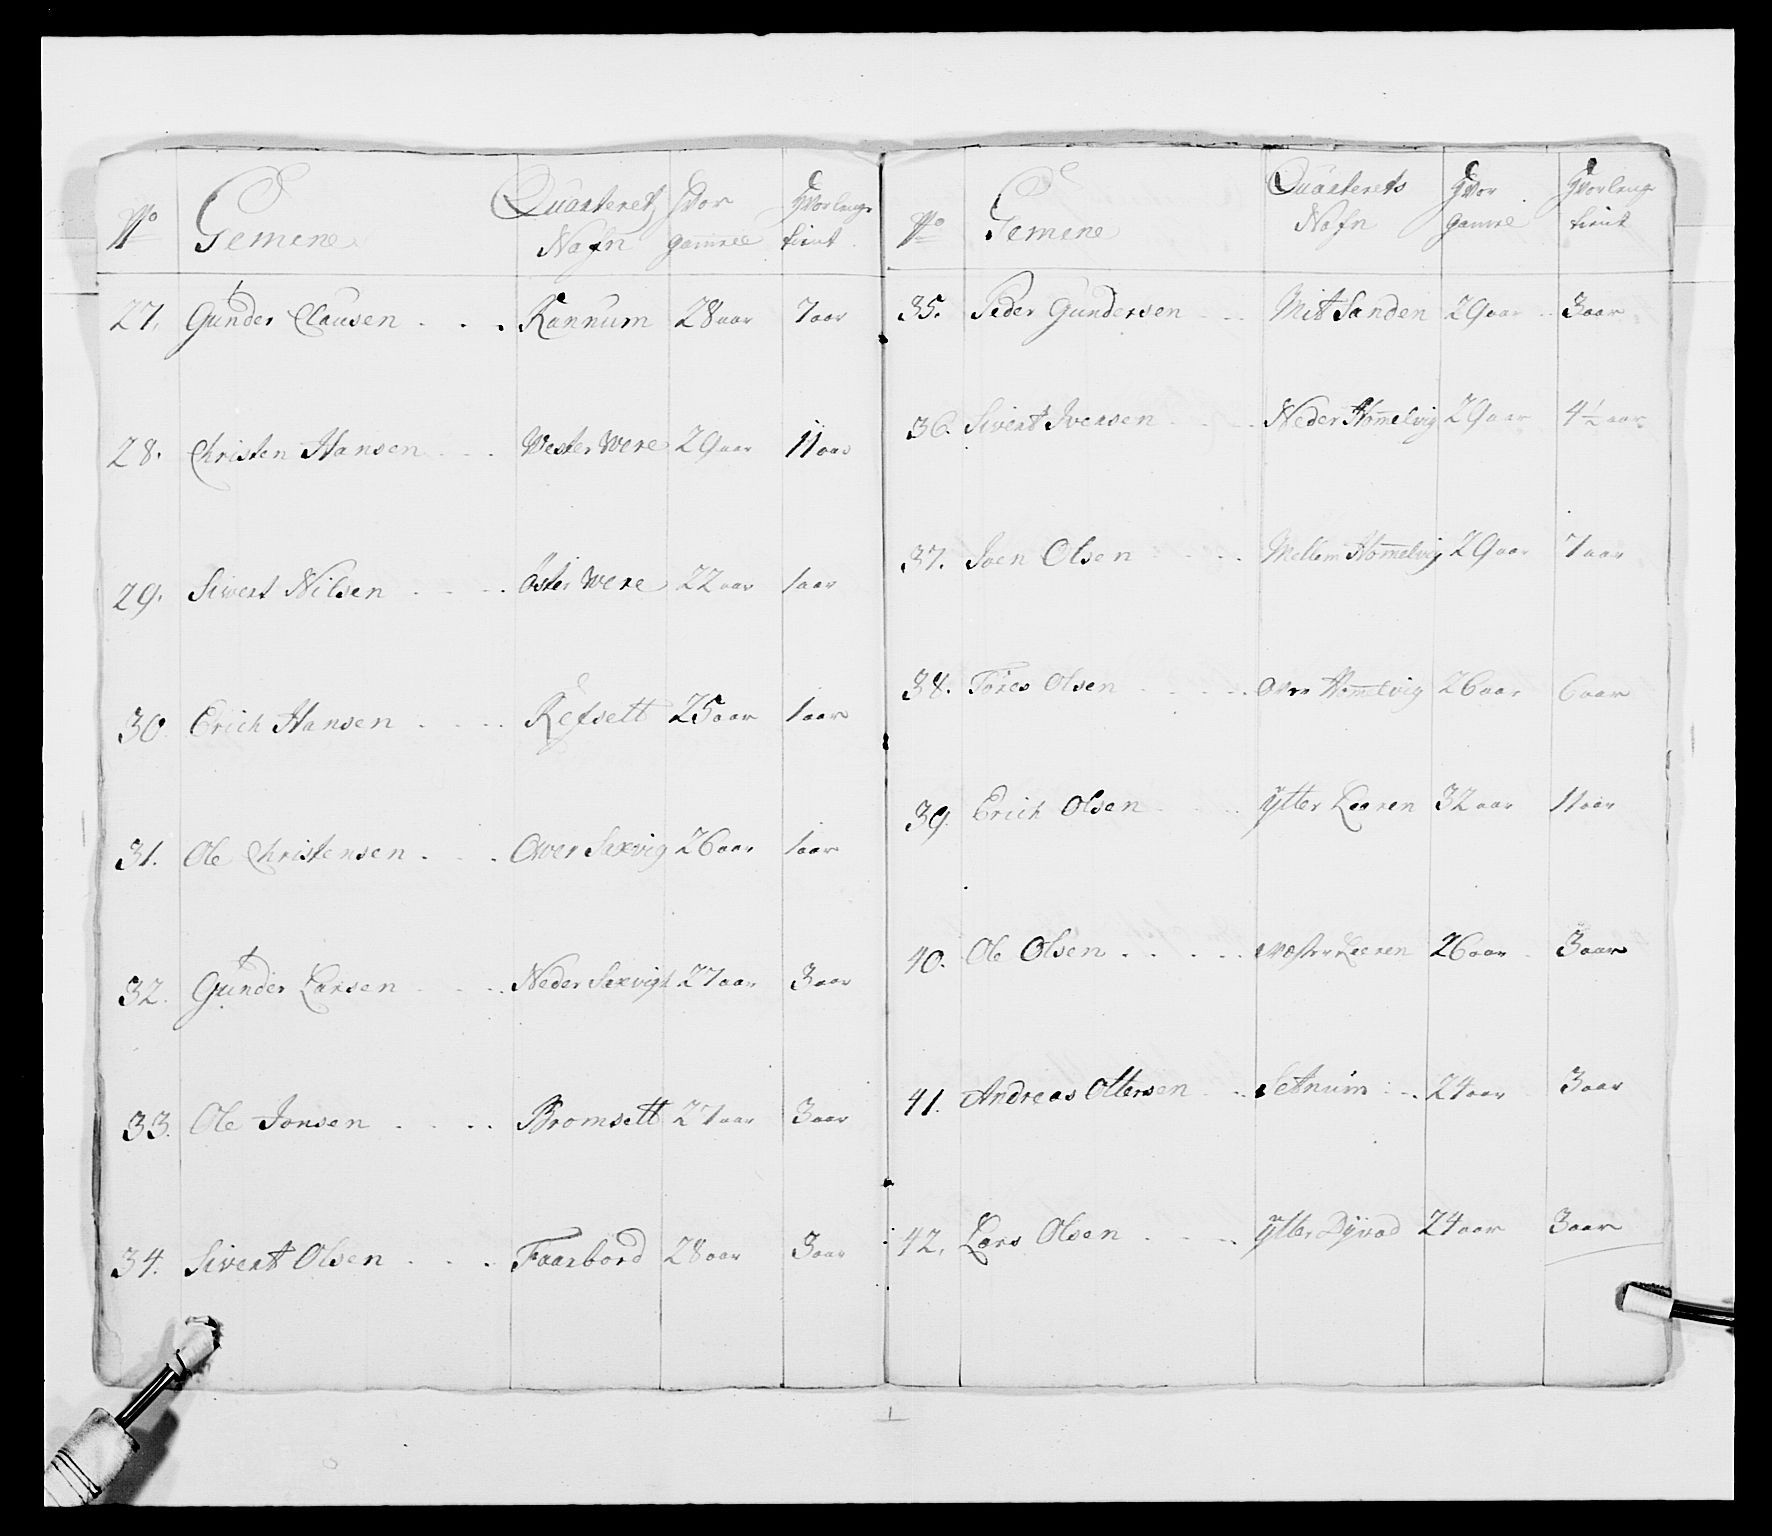 No Gemene Quarterets Nafn Hvor gamele Hvorlenge tient
27. Gunder Clausen . . . Rannum 28 aar 7 aar
28. Christen Hansen . . . Vester Were 29 aar 11 aar
29. Sivert Nilsen . . . Öster Were 22 aar 1 aar
30. Erich Hansen . . . Refsett 25 aar 1 aar
31. Ole Christensen . . . Over Saxvig 26 aar 1 aar
32. Gunder Larsen . . . Neder Saxvigh 27 aar 3 aar
33. Ole Jonsen . . . . Bromsett 27 aar 3 aar
34. Sivert Olsen . . . Faarbord 28 aar 3 aar
No Gemene Quarterets Nafn Hvor gamle Hvorlenge tient
35. Peder Gundersen . . Mit Sanden 29 aar 3 aar
36. Sivert Iversen . . . Neder Hom̅elvig 29 aar 4½ aar
37. Joen Olsen . . . Mellem Hom̅elvig 29 aar 7 aar
38. Töres Olsen . . . . Over Hom̅elvig 26 aar 6 aar
39. Erich Olsen . . . Ytter Leeren 32 aar 11 aar
40. Ole Olsen . . . . . Leeren 26 aar 3 aar
41. Andreas Ottersen . . Setnum . . 24 aar 3 aar
42. Lars Olsen . . . Ytter 24 aar 3 aar